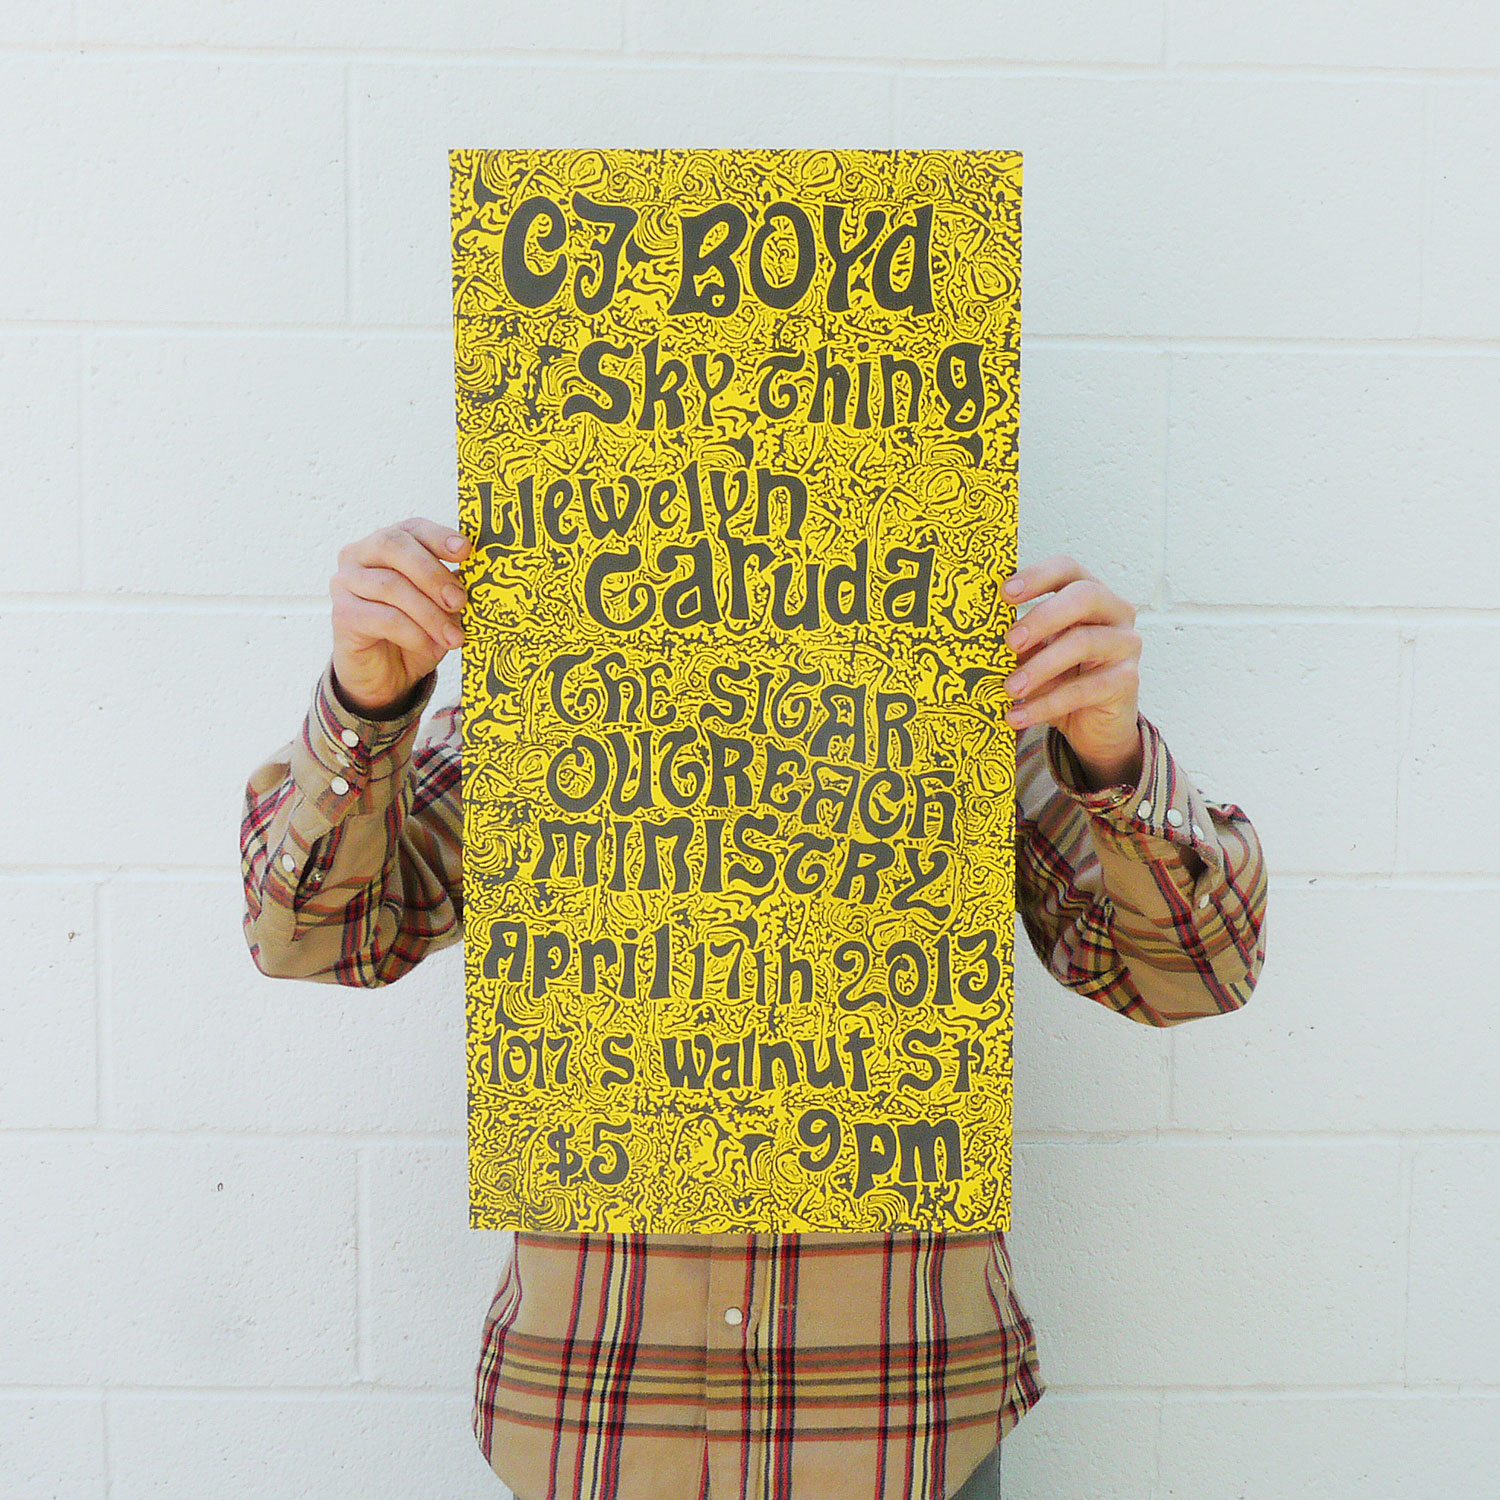 CJ BOYd
Sky Thing
Llewelyn
Garuda
THE SITAR
OUTREACH
MINISTRY
April 17th 2013
1017 S Walnut St
$5 9pm